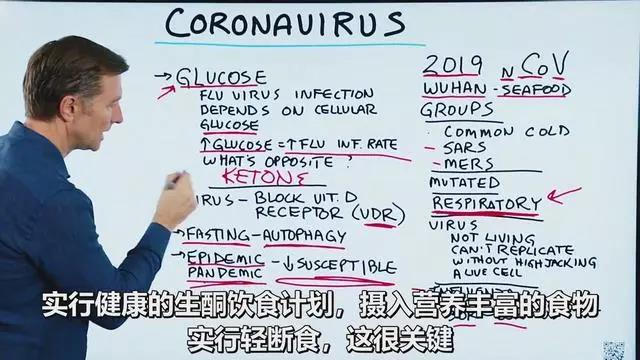 CORONAVIRUS
→ GLUCOSE
FLU VIRUS INFECTION
DEPENDS ON CELLULAR
GLUCOSE
↑GLUCOSE = ↑ FLU INF. RATE
WHAT'S OPPOSITE?
KETONE
IRUS - BLOCK VIT. D
RECEPTOR (VDR)
→ FASTING - AUTOPHAGY
→ EPIDEMIC
PANDEMIC - ↓SUSCEPTIBLE
2019 NCOV
WUHAN - SEAFOOD
GROUPS
· COMMON COLD
- SARS
- MERS
MUTATED
RESPIRATORY
VIRUS
NOT LIVING
CAN'T REPLICATE
WITHOUT HIGHJACKING
A LIVE CELL
实行健康的生酮饮食计划，摄入营养丰富的食物
实行轻断食，这很关键